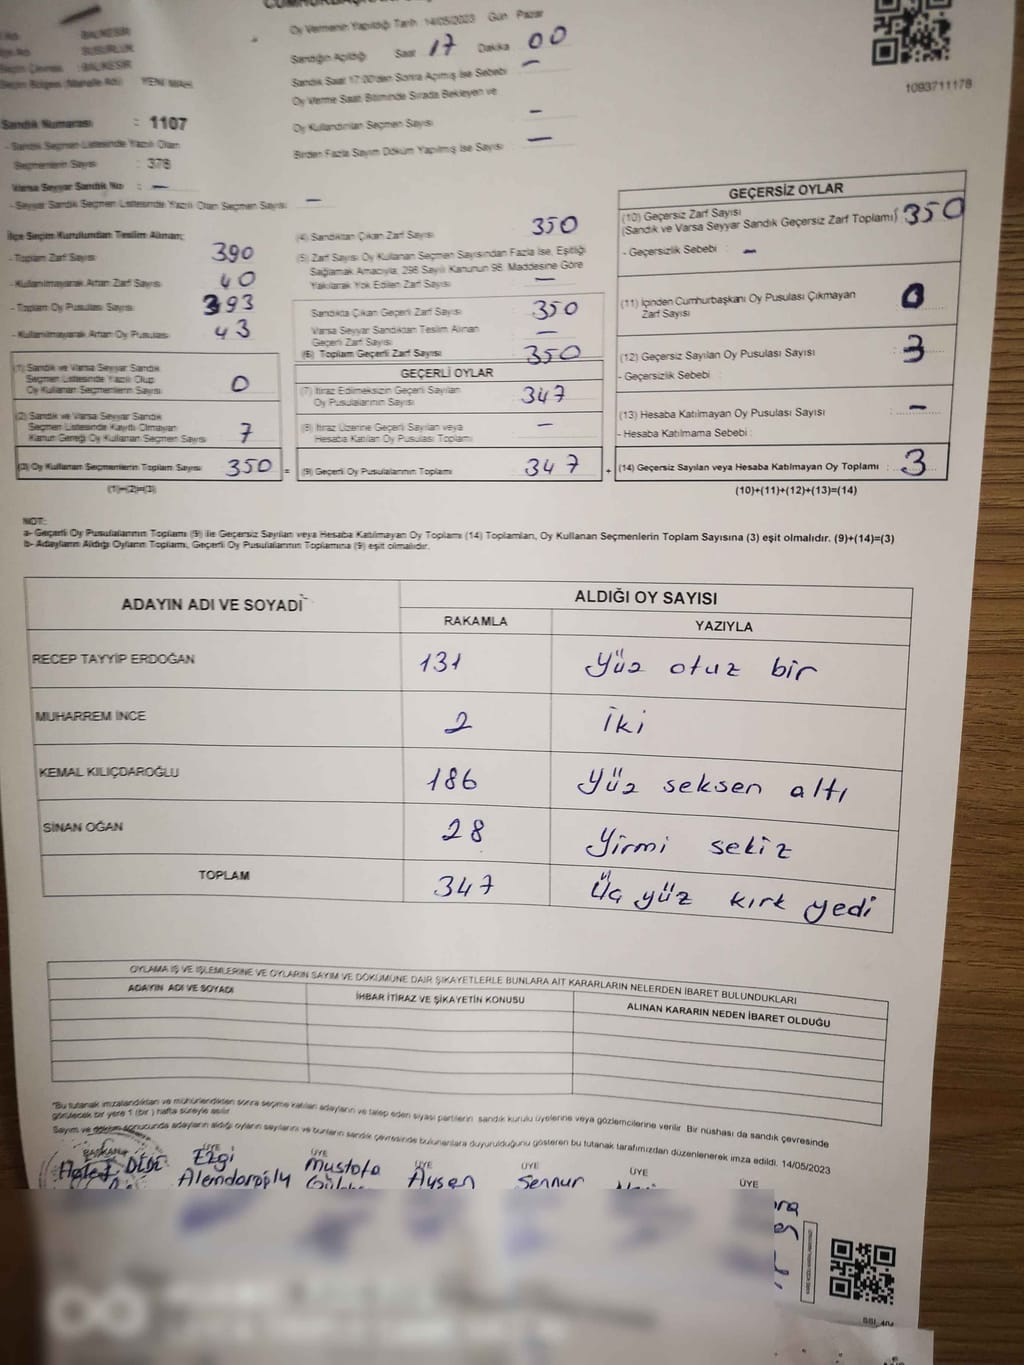 Oy Vermenin Yapıldığı Tarih 14/05/2023 Gün Pazar
Sandığın Açıldığı Saat 17 Dakika 00
Sandık Saat 17:00'den Sonra Açılmış İse Sebebi —
Oy Verme Saati Bitiminde Sırada Bekleyen ve
Oy Kullandırılan Seçmen Sayısı —
Birden Fazla Sayım Döküm Yapılmış İse Sayısı —
BALIKESİR
SUSURLUK
BALIKESİR
YENİ MAH
Sandık Numarası : 1107
- Sandık Seçmen Listesinde Yazılı Olan
Seçmenlerin Sayısı : 378
Varsa Seyyar Sandık No : —
- Seyyar Sandık Seçmen Listesinde Yazılı Olan Seçmen Sayısı —
1093711178
İlçe Seçim Kurulundan Teslim Alınan;
- Toplam Zarf Sayısı 390
- Kullanılmayarak Artan Zarf Sayısı 40
- Toplam Oy Pusulası Sayısı 393
- Kullanılmayarak Artan Oy Pusulası 43
(1) Sandık ve Varsa Seyyar Sandık
Seçmen Listesinde Yazılı Olup
Oy Kullanan Seçmenlerin Sayısı 0
(2) Sandık ve Varsa Seyyar Sandık
Seçmen Listesinde Kayıtlı Olmayan
Kanun Gereği Oy Kullanan Seçmen Sayısı 7
(3) Oy Kullanan Seçmenlerin Toplam Sayısı 350 =
(1)+(2)=(3)
(4) Sandıktan Çıkan Zarf Sayısı 350
(5) Zarf Sayısı Oy Kullanan Seçmen Sayısından Fazla İse, Eşitliği
Sağlamak Amacıyla, 298 Sayılı Kanunun 98. Maddesine Göre
Yakılarak Yok Edilen Zarf Sayısı —
Sandıkta Çıkan Geçerli Zarf Sayısı 350
Varsa Seyyar Sandıktan Teslim Alınan
Geçerli Zarf Sayısı —
(6) Toplam Geçerli Zarf Sayısı 350
GEÇERLİ OYLAR
(7) İtiraz Edilmeksizin Geçerli Sayılan
Oy Pusulalarının Sayısı 347
(8) İtiraz Üzerine Geçerli Sayılan veya
Hesaba Katılan Oy Pusulası Toplamı —
(9) Geçerli Oy Pusulalarının Toplamı 347 +
GEÇERSİZ OYLAR
(10) Geçersiz Zarf Sayısı
(Sandık ve Varsa Seyyar Sandık Geçersiz Zarf Toplamı) 350
- Geçersizlik Sebebi : —
(11) İçinden Cumhurbaşkanı Oy Pusulası Çıkmayan
Zarf Sayısı 0
(12) Geçersiz Sayılan Oy Pusulası Sayısı : 3
- Geçersizlik Sebebi :
(13) Hesaba Katılmayan Oy Pusulası Sayısı : —
- Hesaba Katılmama Sebebi :
(14) Geçersiz Sayılan veya Hesaba Katılmayan Oy Toplamı : 3
(10)+(11)+(12)+(13)=(14)
NOT:
a- Geçerli Oy Pusulalarının Toplamı (9) ile Geçersiz Sayılan veya Hesaba Katılmayan Oy Toplamı (14) Toplamları, Oy Kullanan Seçmenlerin Toplam Sayısına (3) eşit olmalıdır. (9)+(14)=(3)
b- Adayların Aldığı Oyların Toplamı, Geçerli Oy Pusulalarının Toplamına (9) eşit olmalıdır.
ADAYIN ADI VE SOYADI ALDIĞI OY SAYISI
RAKAMLA YAZIYLA
RECEP TAYYİP ERDOĞAN 131 Yüz otuz bir
MUHARREM İNCE 2 İki
KEMAL KILIÇDAROĞLU 186 Yüz seksen altı
SİNAN OĞAN 28 Yirmi sekiz
TOPLAM 347 Üç yüz kırk yedi
OYLAMA İŞ VE İŞLEMLERİNE VE OYLARIN SAYIM VE DÖKÜMÜNE DAİR ŞİKAYETLERLE BUNLARA AİT KARARLARIN NELERDEN İBARET BULUNDUKLARI
ADAYIN ADI VE SOYADI İHBAR İTİRAZ VE ŞİKAYETİN KONUSU ALINAN KARARIN NEDEN İBARET OLDUĞU
"Bu tutanak imzalandıktan ve mühürlendikten sonra seçime katılan adayların ve talep eden siyasi partilerin sandık kurulu üyelerine veya gözlemcilerine verilir. Bir nüshası da sandık çevresinde
görülecek bir yere 1 (bir ) hafta süreyle asılır.
Sayım ve döküm sonucunda adayların aldığı oyların sayılarını ve bunların sandık çevresinde bulunanlara duyurulduğunu gösteren bu tutanak tarafımızdan düzenlenerek imza edildi. 14/05/2023
BAŞKAN ÜYE ÜYE ÜYE ÜYE ÜYE ÜYE
DEDE Ezgi Mustafa Aysen Sennur